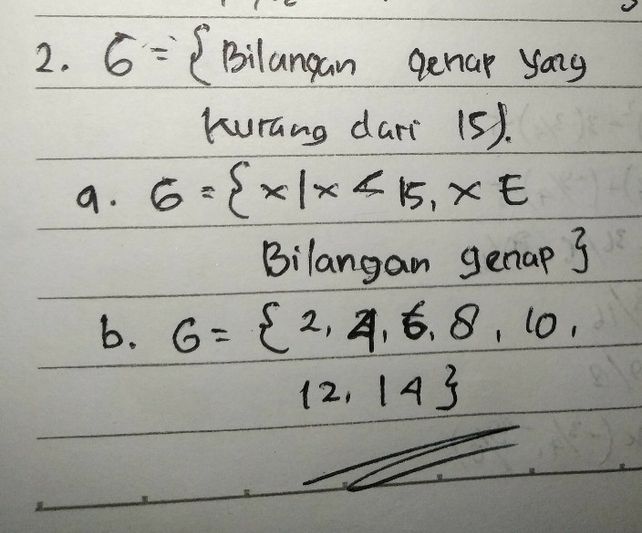 2. G = { Bilangan genap yang
kurang dari 15}.
a. G = { x | x < 15, x ∈
Bilangan genap }
b. G = { 2, 4, 6, 8, 10,
12, 14 }